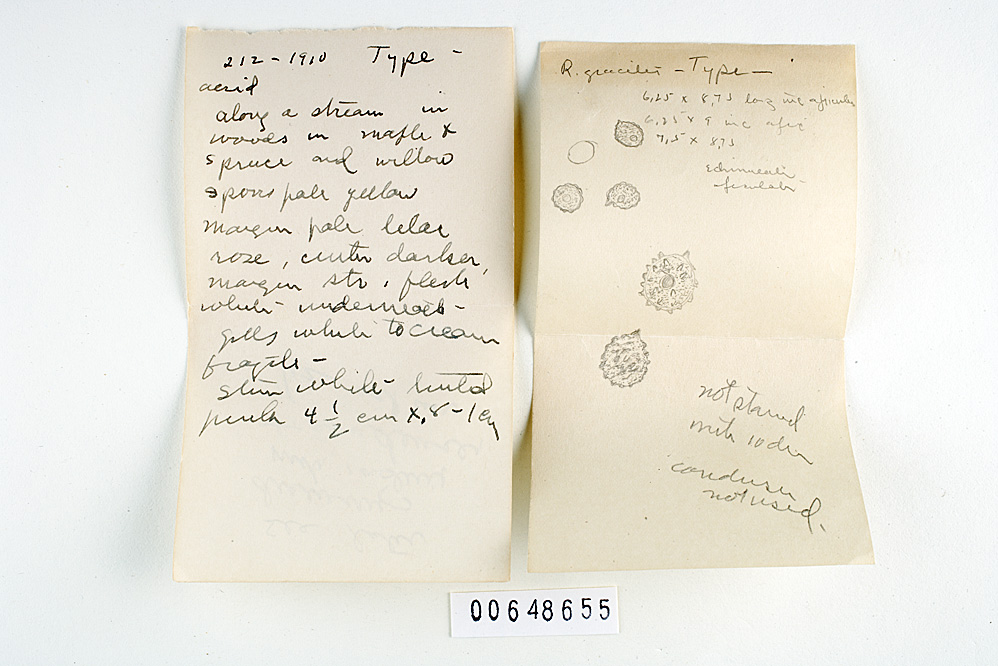 212 - 1910 Type -
acrid
along a stream in
woods in maple &
spruce and willow
spores pale yellow
margin pale lilac
rose, center darker,
margin str, flesh
white underneath -
gills white to cream
fragile -
stem white tinted
pink 4 1/2 cm x .8 - 1 cm
R. gracilis - Type -
6.25 x 8.75 long inc apiculus
6.25 x 9 inc apic
7.5 x 8.75
Echinulate
not stained
with iodin
condenser
not used.
00648655